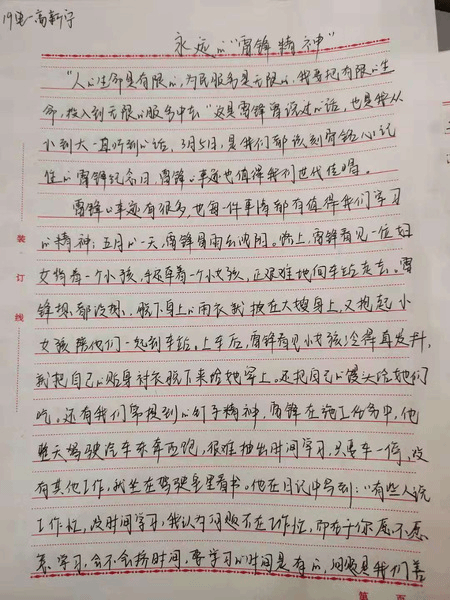 19电一高新宇
永远的“雷锋精神”
“人的生命是有限的,为民服务是无限的,我要把有限的生
命,投入到无限的服务中去”这是雷锋曾说过的话,也是我从
小到大一直听到的话,3月5日,是我们都该刻骨铭心记
住的雷锋纪念日,雷锋的事迹也值得我们世代传唱。
雷锋的事迹有很多,也每一件事情都有值得我们学习
的精神:五月的一天,雷锋冒雨去沈阳。路上,雷锋看见一位妇
女背着一个小孩,手还牵着一个小女孩,正艰难地向车站走去。雷
锋想都没想,脱下身上的雨衣就披在大嫂身上,又抱起小
女孩陪他们一起到车站。上车后,雷锋看见小女孩冷得直发抖,
就把自己的贴身衬衣脱下来给她穿上。还把自己的馒头给她们
吃。还有我们常提到的钉子精神,雷锋在施工任务中,他
整天驾驶汽车东奔西跑,很难抽出时间学习,只要车一停,没
有其他工作,就坐在驾驶室里看书。他在日记中写到:“有些人说
工作忙,没时间学习,我认为问题不在工作忙,而在于你愿不愿
意学习,会不会挤时间,要学习的时间是有的,问题是我们善
装
订
线
第 页